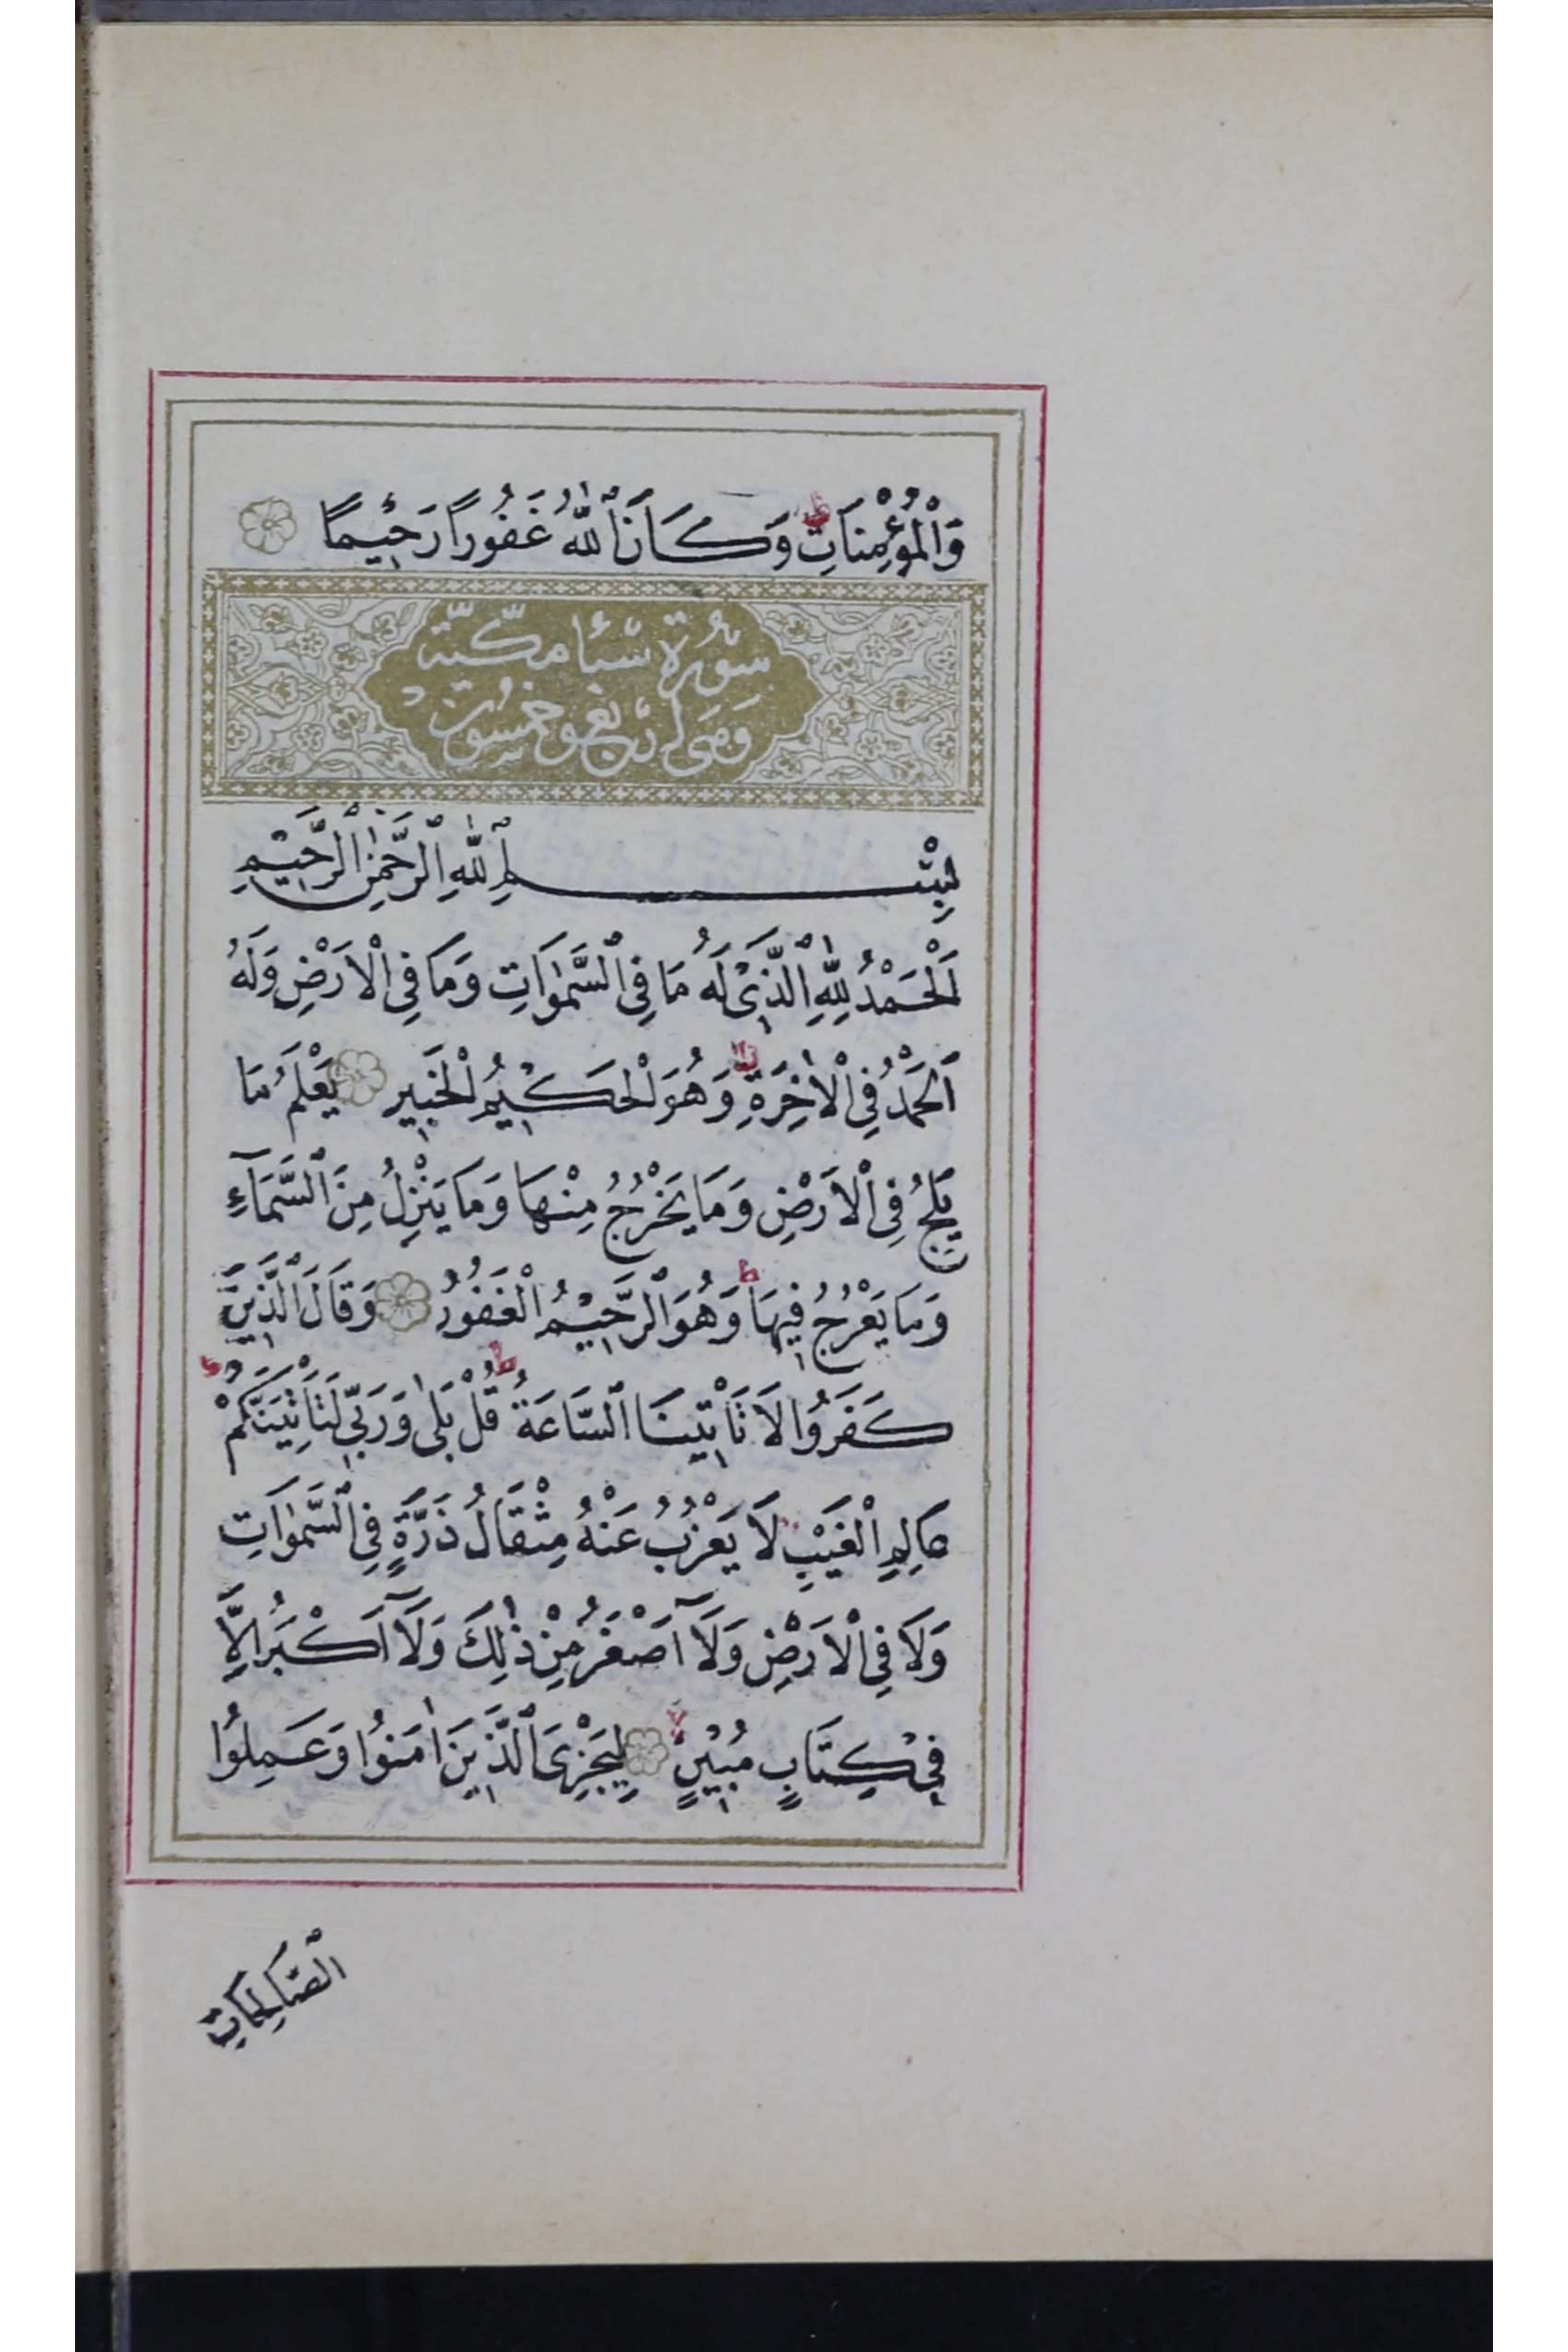 وَالْمُؤْمِنَاتِ ط وَكَانَ اللّٰهُ غَفُورًا رَحِيمًا
سورة سبأ مكية
وهي اربع وخمسون
بِسْمِ اللّٰهِ الرَّحْمٰنِ الرَّحِيمِ
اَلْحَمْدُ لِلّٰهِ الَّذِي لَهُ مَا فِي السَّمٰوَاتِ وَمَا فِي الْاَرْضِ وَلَهُ
الْحَمْدُ فِي الْاٰخِرَةِ ط وَهُوَ الْحَكِيمُ الْخَبِير يَعْلَمُ مَا
يَلِجُ فِي الْاَرْضِ وَمَا يَخْرُجُ مِنْهَا وَمَا يَنْزِلُ مِنَ السَّمَآءِ
وَمَا يَعْرُجُ فِيهَا ط وَهُوَ الرَّحِيمُ الْغَفُورُ وَقَالَ الَّذِينَ
كَفَرُوا لَا تَأْتِينَا السَّاعَةُ ط قُلْ بَلٰى وَرَبِّي لَتَأْتِيَنَّكُمْ
عَالِمِ الْغَيْبِ لَا يَعْزُبُ عَنْهُ مِثْقَالُ ذَرَّةٍ فِي السَّمٰوَاتِ
وَلَا فِي الْاَرْضِ وَلَآ اَصْغَرُ مِنْ ذٰلِكَ وَلَآ اَكْبَرُ اِلَّا
فِي كِتَابٍ مُبِينٍ لا لِيَجْزِيَ الَّذِينَ اٰمَنُوا وَعَمِلُوا
الصَّالِحَاتِ